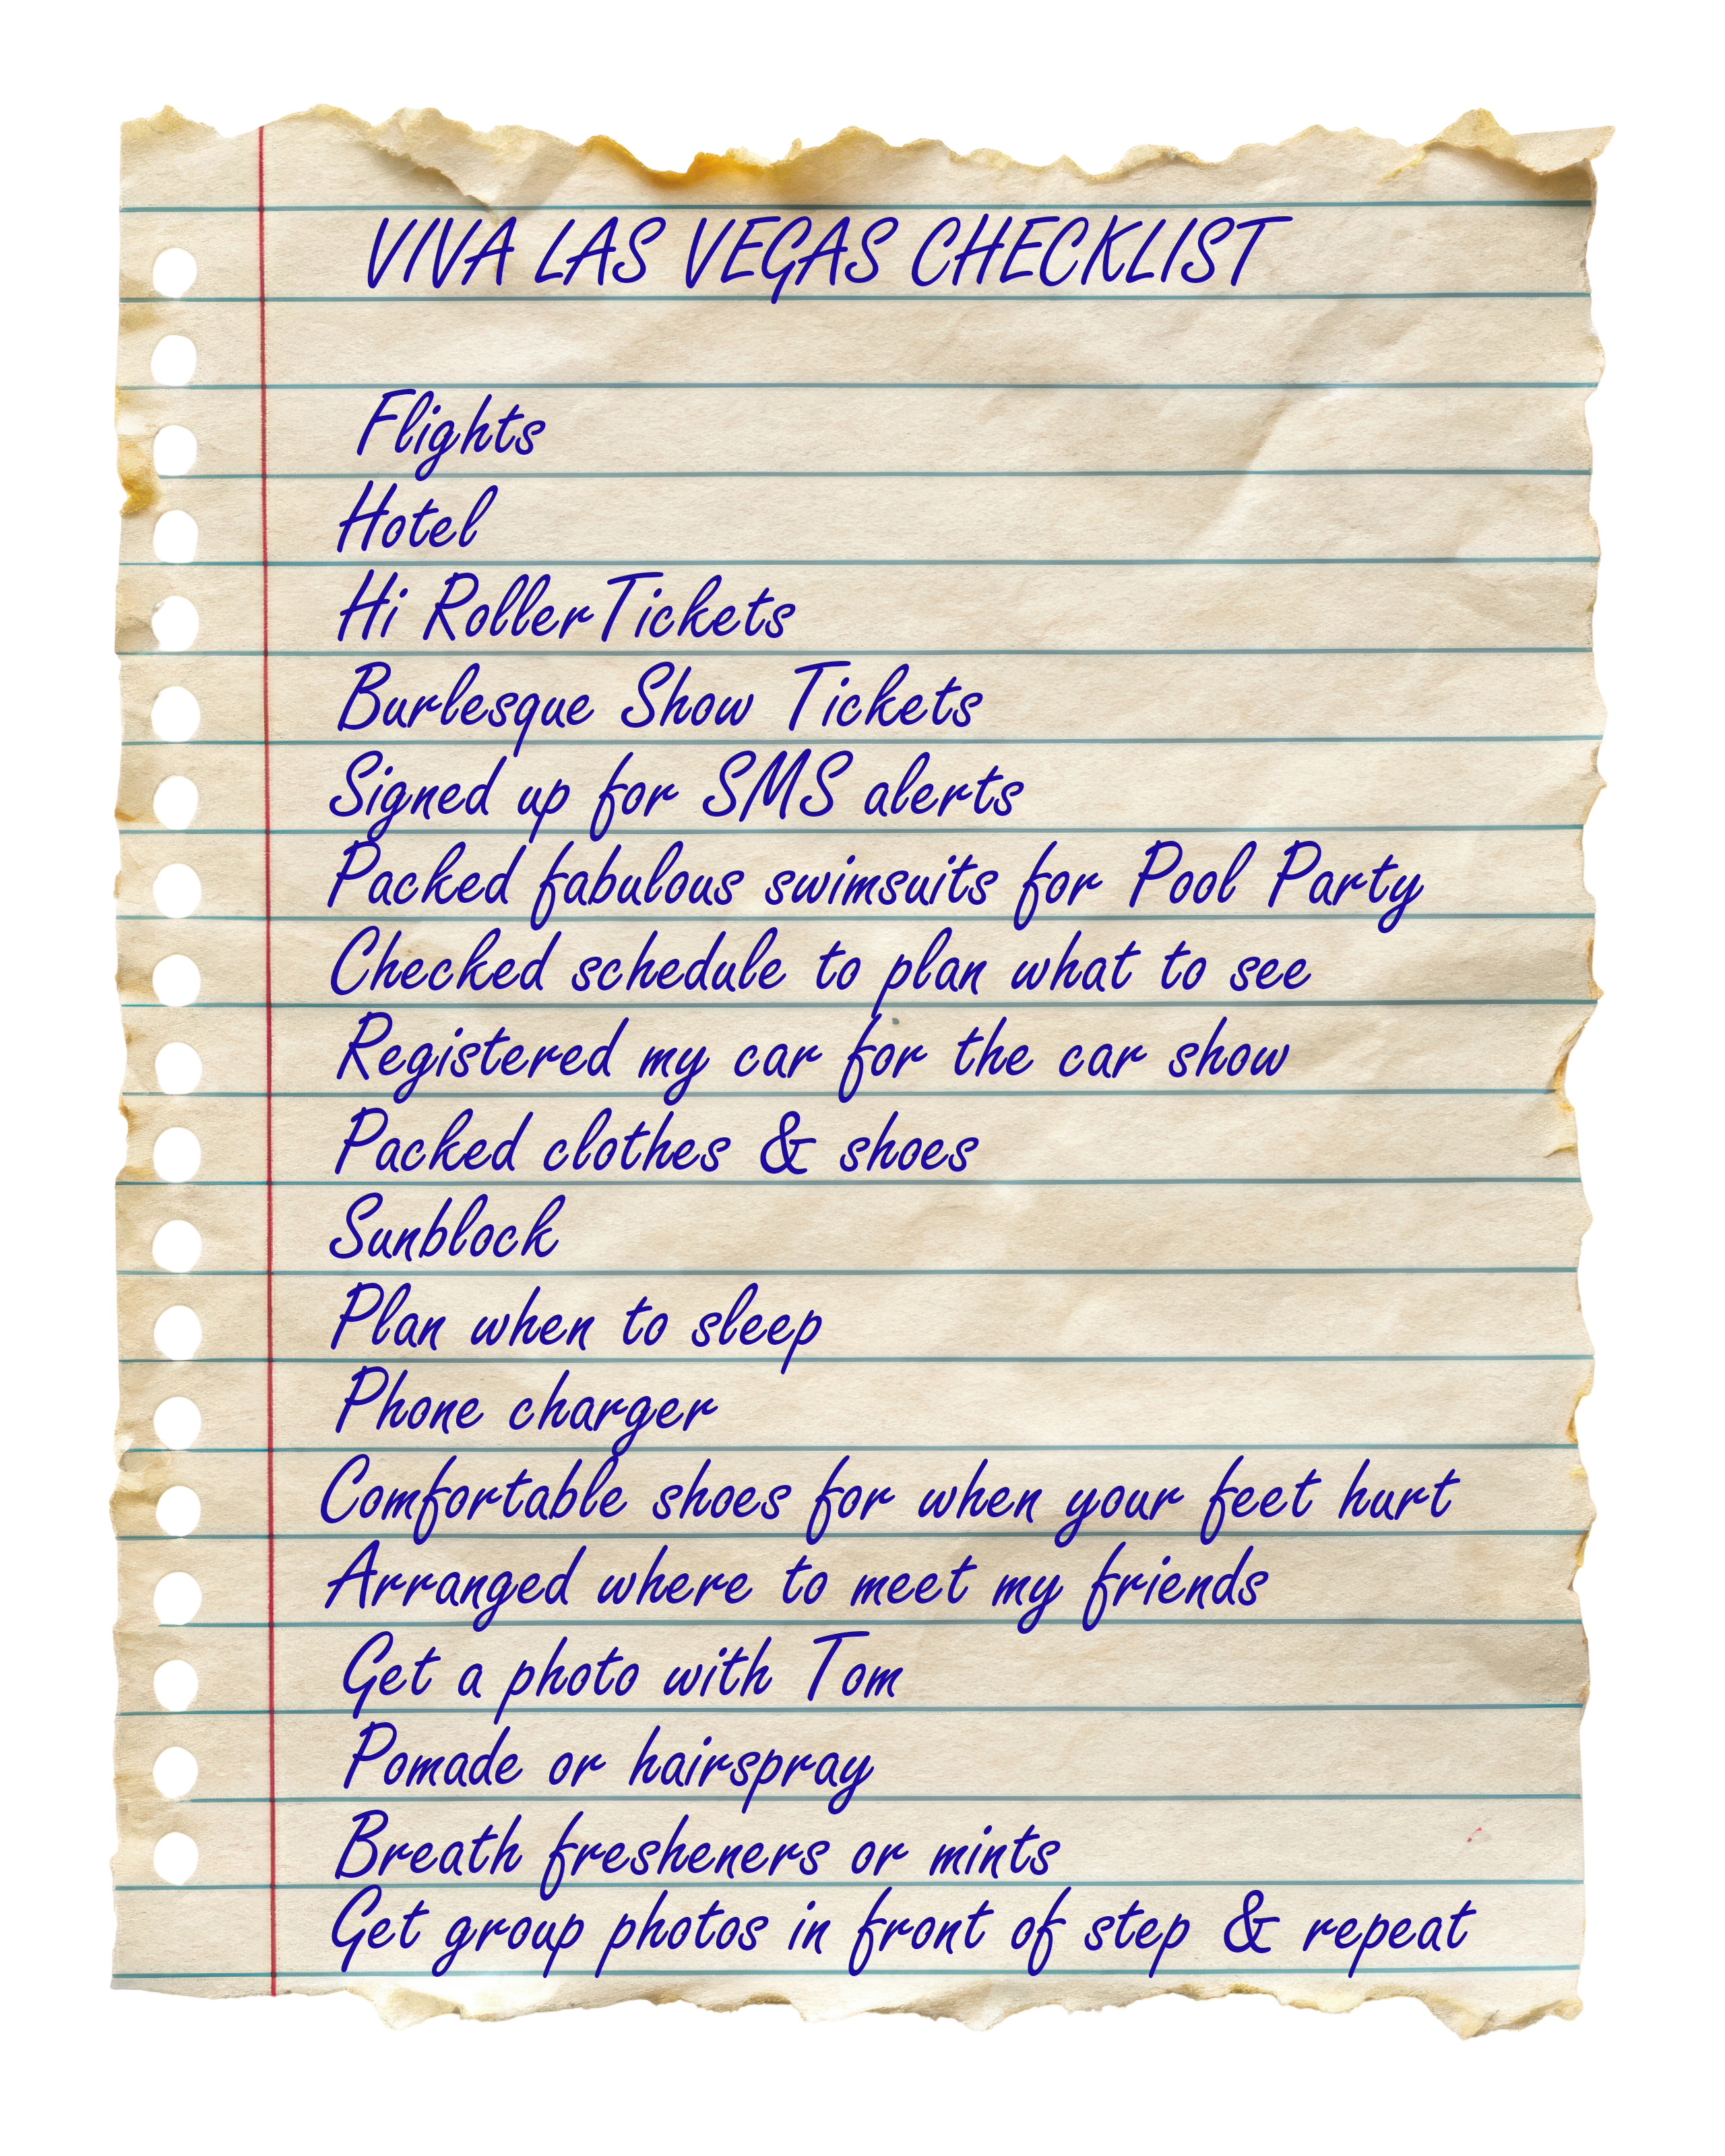 VIVA LAS VEGAS CHECKLIST
Flights
Hotel
Hi Roller Tickets
Burlesque Show Tickets
Signed up for SMS alerts
Packed fabulous swimsuits for Pool Party
Checked schedule to plan what to see
Registered my car for the car show
Packed clothes & shoes
Sunblock
Plan when to sleep
Phone charger
Comfortable shoes for when your feet hurt
Arranged where to meet my friends
Get a photo with Tom
Pomade or hairspray
Breath fresheners or mints
Get group photos in front of step & repeat